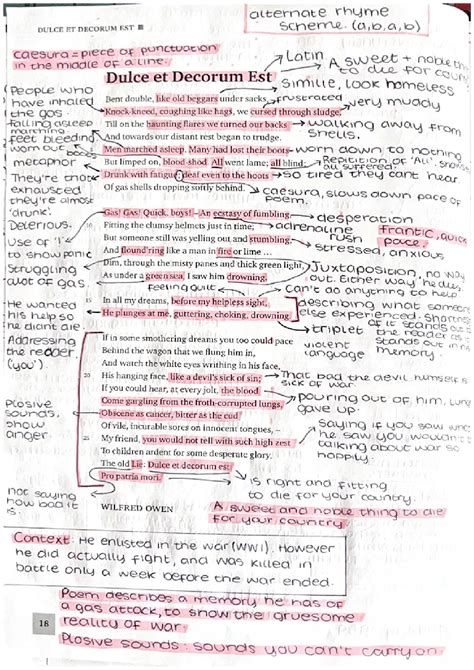 DULCE ET DECORUM EST
alternate rhyme
scheme. (a,b,a,b)
caesura = piece of punctuation
in the middle of a line.
Latin
A sweet + noble thing
to die for country
Dulce et Decorum Est
Similie, look homeless
People who
have inhaled
the gas.
falling asleep
marching.
feet bleeding
worn out boots
metaphor
They're that
exhausted
they're almost
'drunk'.
Delerious.
Use of '!'
to show panic
Struggling
out of gas.
He wanted
his help so
he didnt die.
Addressing
the reader
('you')
Plosive
sounds,
show
anger.
not saying
how bad it
is.
Bent double, like old beggars under sacks,
frustrated
Knock-kneed, coughing like hags, we cursed through sludge,
very muddy
Till on the haunting flares we turned our backs
walking away from
shells.
And towards our distant rest began to trudge.
Men marched asleep. Many had lost their boots
worn down to nothing
But limped on, blood-shod. All went lame; all blind;
Repitition of 'All',
all suffered.
Drunk with fatigue; deaf even to the hoots
so tired they cant hear
Of gas shells dropping softly behind.
caesura, slows down pace of
poem.
Gas! Gas! Quick, boys! – An ecstasy of fumbling,
desperation
Fitting the clumsy helmets just in time;
adrenaline
rush
frantic, quick
pace.
But someone still was yelling out and stumbling,
stressed, anxious
And flound'ring like a man in fire or lime ...
Dim, through the misty panes and thick green light,
Juxtaposition, no way
out. Either way he dies,
As under a green sea, I saw him drowning.
feeling guilt
Can't do anything to help
In all my dreams, before my helpless sight,
describing what someone
else experienced.
He plunges at me, guttering, choking, drowning.
triplet
violent
language
stands out in
memory.
If in some smothering dreams you too could pace
Behind the wagon that we flung him in,
And watch the white eyes writhing in his face,
His hanging face, like a devil's sick of sin;
That bad the devil himself is
sick of war.
If you could hear, at every jolt, the blood
Come gargling from the froth-corrupted lungs,
Pouring out of him, lungs
gave up.
Obscene as cancer, bitter as the cud
Of vile, incurable sores on innocent tongues, –
Saying if you saw what
he saw you wouldn't
talking about war so
happily.
My friend, you would not tell with such high zest
To children ardent for some desperate glory,
The old Lie: Dulce et decorum est
Pro patria mori.
is right and fitting
to die for your country.
WILFRED OWEN
A sweet and noble thing to die
for your country
Context: He enlisted in the war (WW1). However
he did actually fight, and was killed in
battle only a week before the war ended.
Poem describes a memory he has of
a gas attack, to show the gruesome
reality of war.
18
Plosive sounds: sounds you can't carry on.